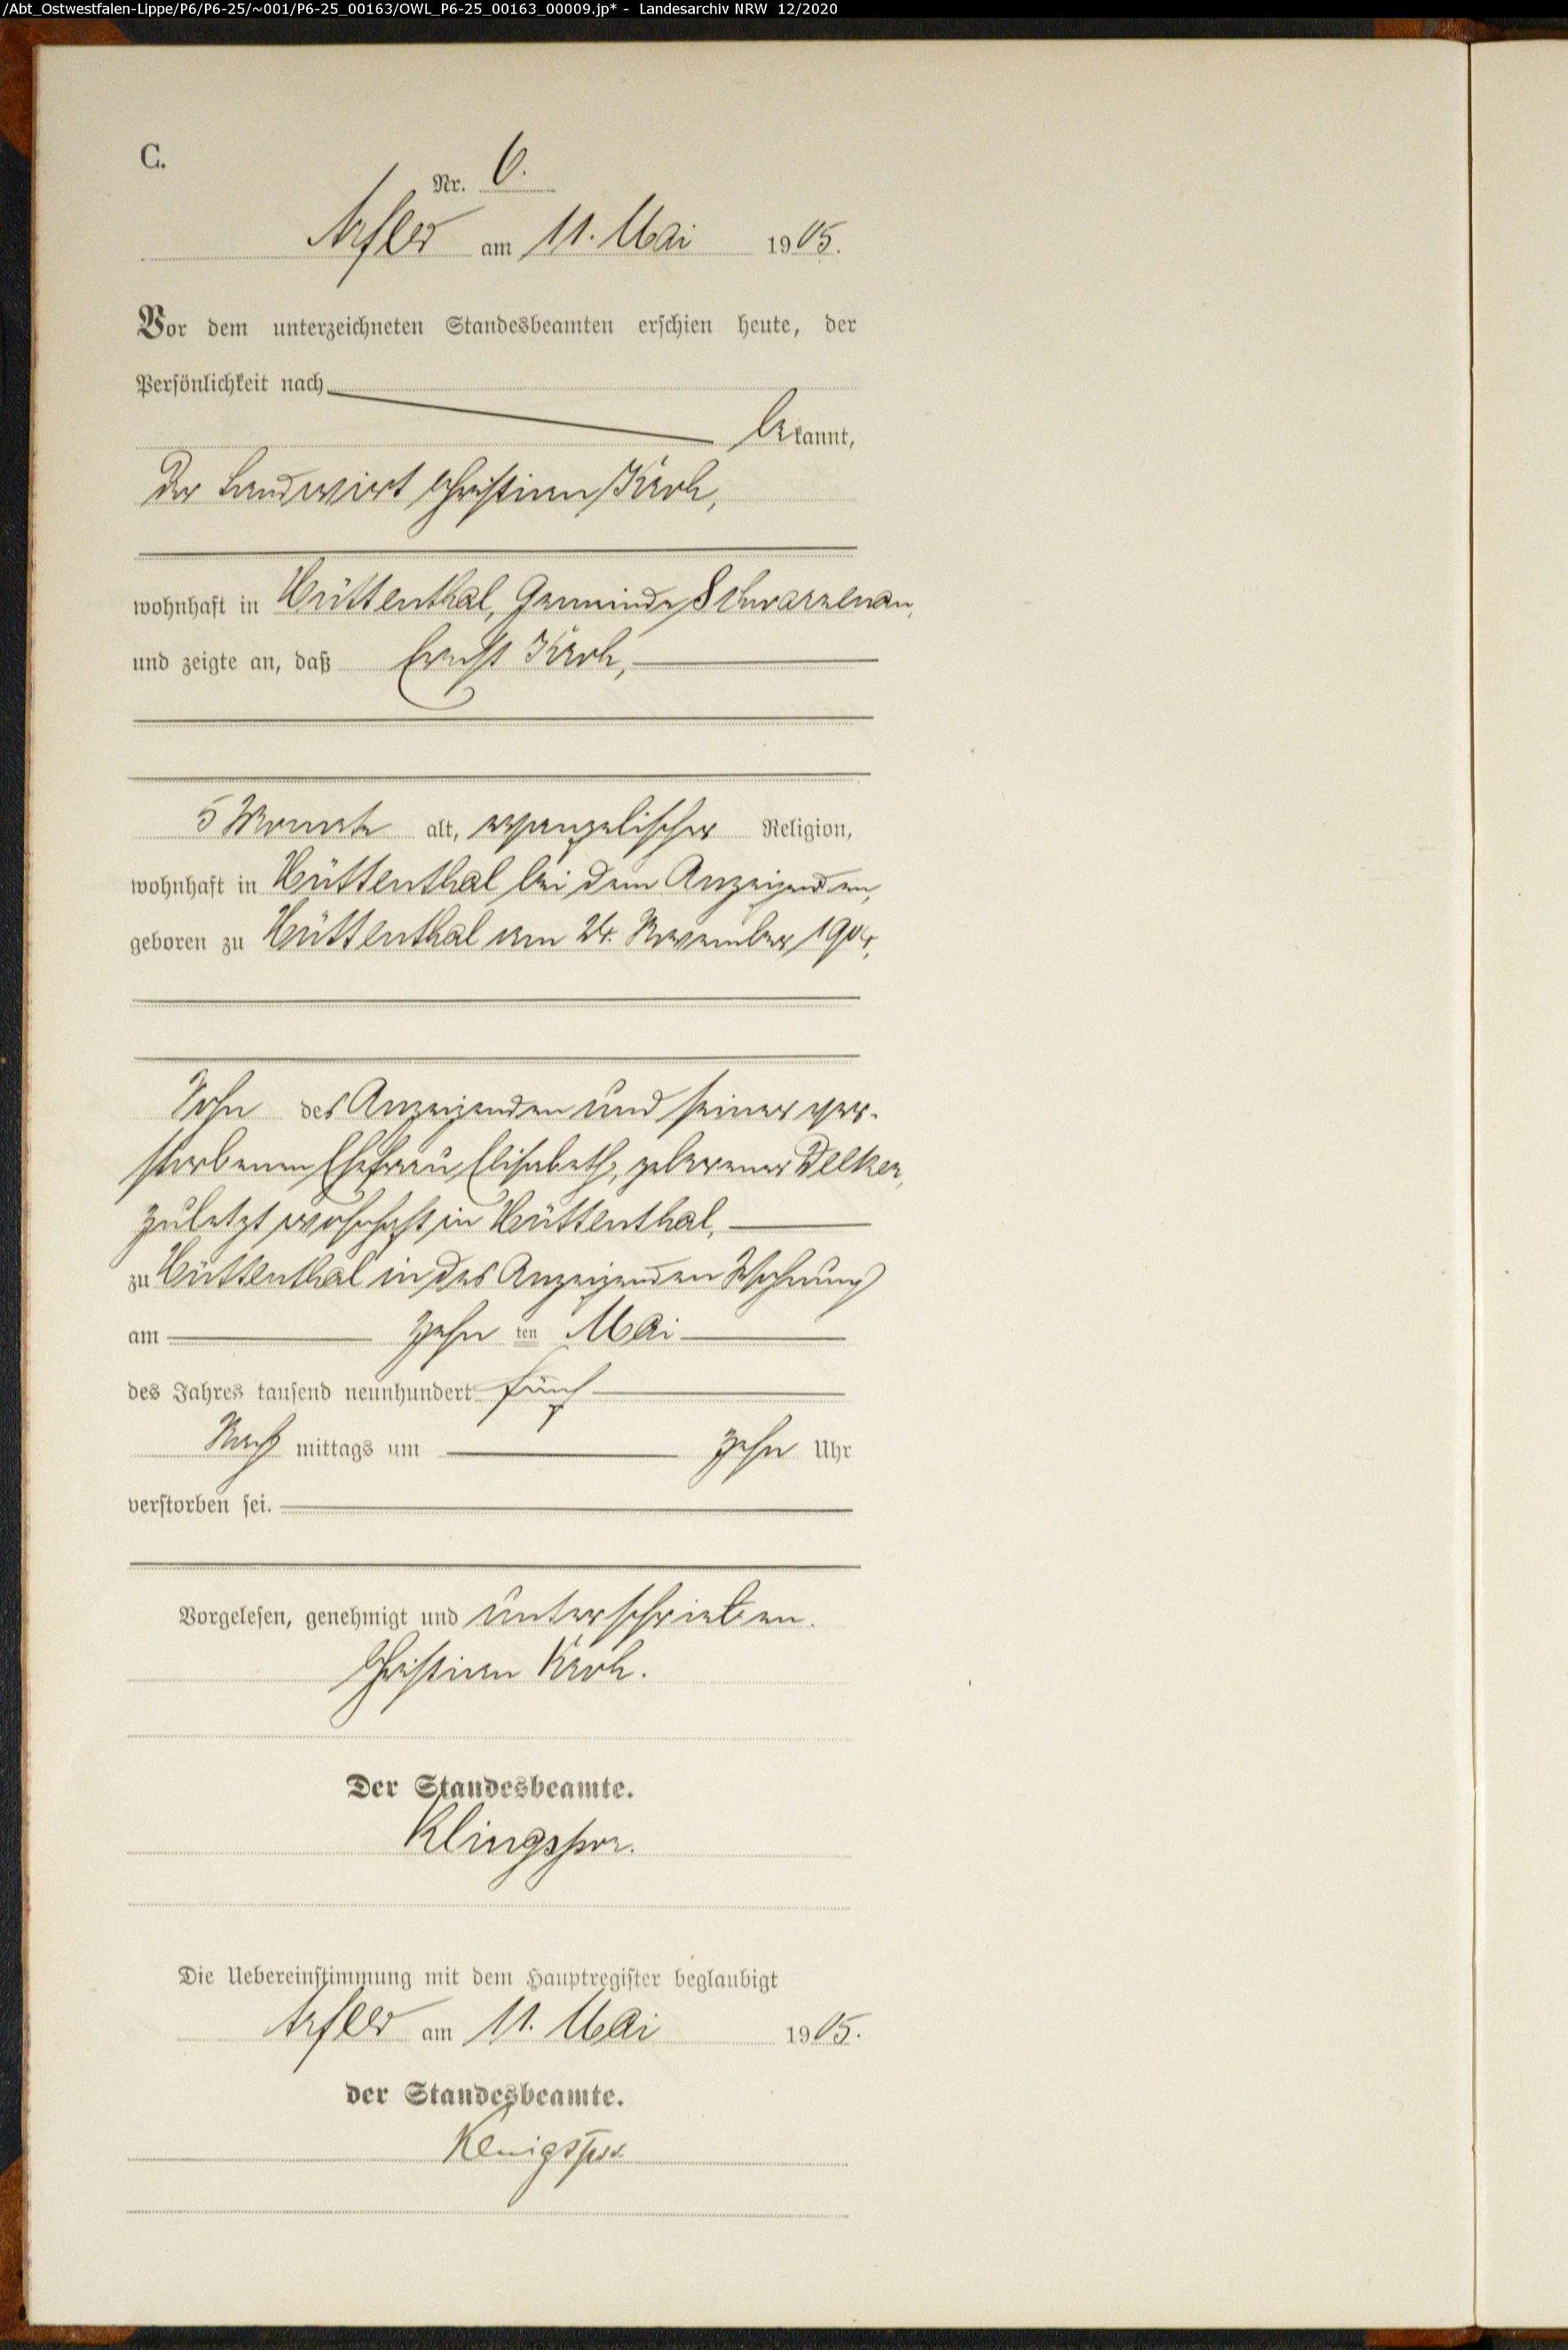 /Abt_Ostwestfalen-Lippe/P6/P6-25/~001/P6-25_00163/OWL_P6-25_00163_00009.jp* - Landesarchiv NRW 12/2020
C.
Nr. 6.
Arfeld am 11. Mai 1905.
Vor dem unterzeichneten Standesbeamten erschien heute, der
Persönlichkeit nach
bekannt,
der Landwirt Christian
wohnhaft in Hüttenthal, Gemeinde Schwarzenau,
und zeigte an, daß Ernst
5 Monate alt, evangelischer Religion,
wohnhaft in Hüttenthal bei dem Anzeigenden,
geboren zu Hüttenthal am 24. November 1904,
Sohn des Anzeigenden und seiner ver-
storbenen Ehefrau Elisabeth, geborener
zuletzt wohnhaft in Hüttenthal,
zu Hüttenthal in des Anzeigenden Wohnung
am zehn ten Mai
des Jahres tausend neunhundert fünf
Nach mittags um zehn Uhr
verstorben sei.
Vorgelesen, genehmigt und unterschrieben.
Christian
Der Standesbeamte.
Klingspor.
Die Uebereinstimmung mit dem Hauptregister beglaubigt
Arfeld am 11. Mai 1905.
der Standesbeamte.
Klingspor